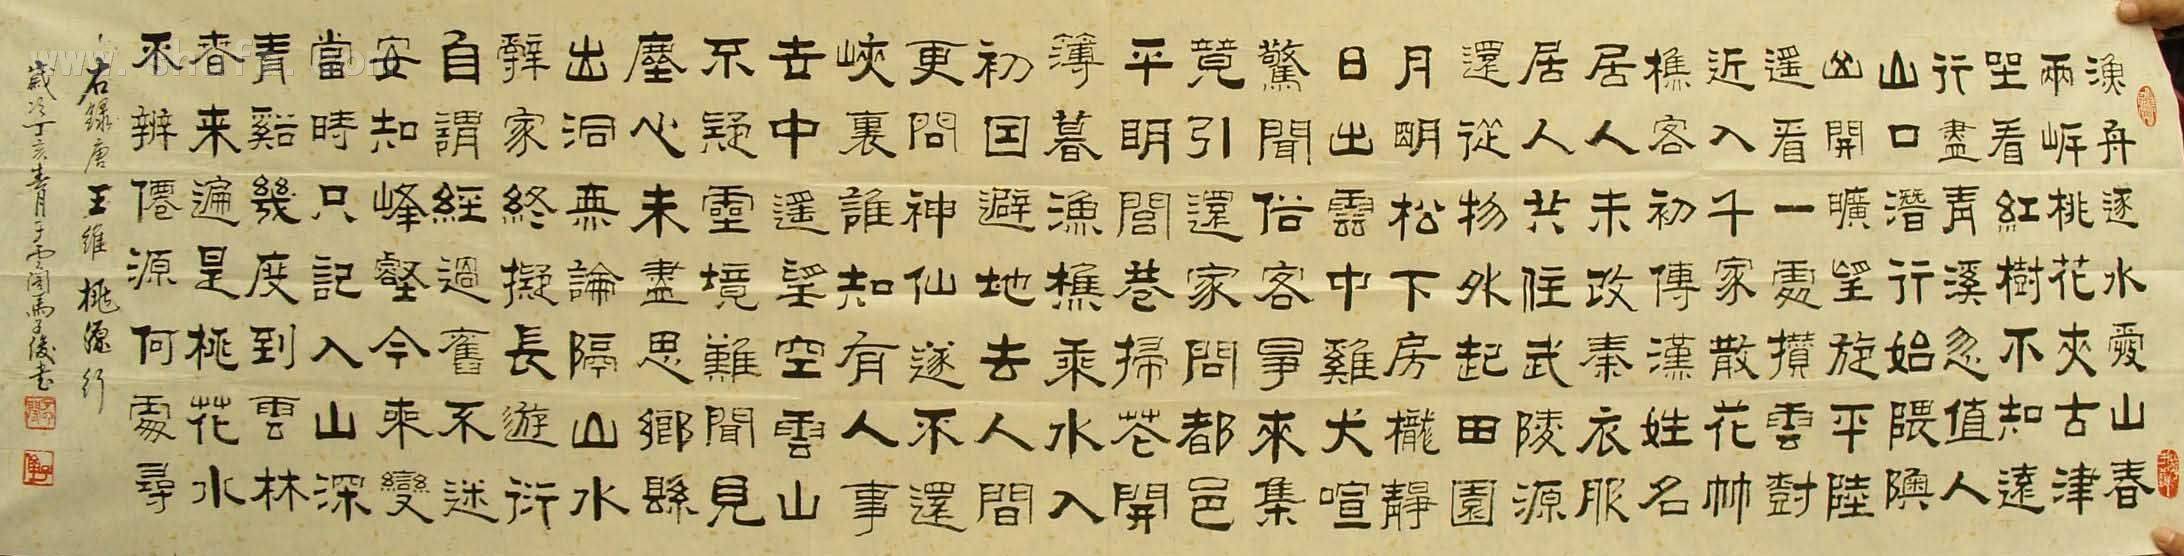 漁舟逐水愛山春
兩岸桃花夾古津
坐看紅樹不知遠
行盡青溪忽值人
山口潛行始隈隩
山開曠望旋平陸
遥看一處攢雲樹
近入千家散花竹
樵客初傳漢姓名
居人未改秦衣服
居人共住武陵源
還從物外起田園
月明松下房櫳靜
日出雲中雞犬喧
驚聞俗客爭來集
竟引還家問都邑
平明閭巷掃花開
簿暮漁樵乘水入
初因避地去人間
更問神仙遂不還
峽裏誰知有人事
世中遥望空雲山
不疑靈境難聞見
塵心未盡思鄉縣
出洞無論隔山水
辭家終擬長遊衍
自謂經過舊不迷
安知峰壑今來變
當時只記入山深
青谿幾度到雲林
春來遍是桃花水
不辨僊源何處尋
右錄唐王維桃源行
歲次丁亥青月于雲閣馬子俊書